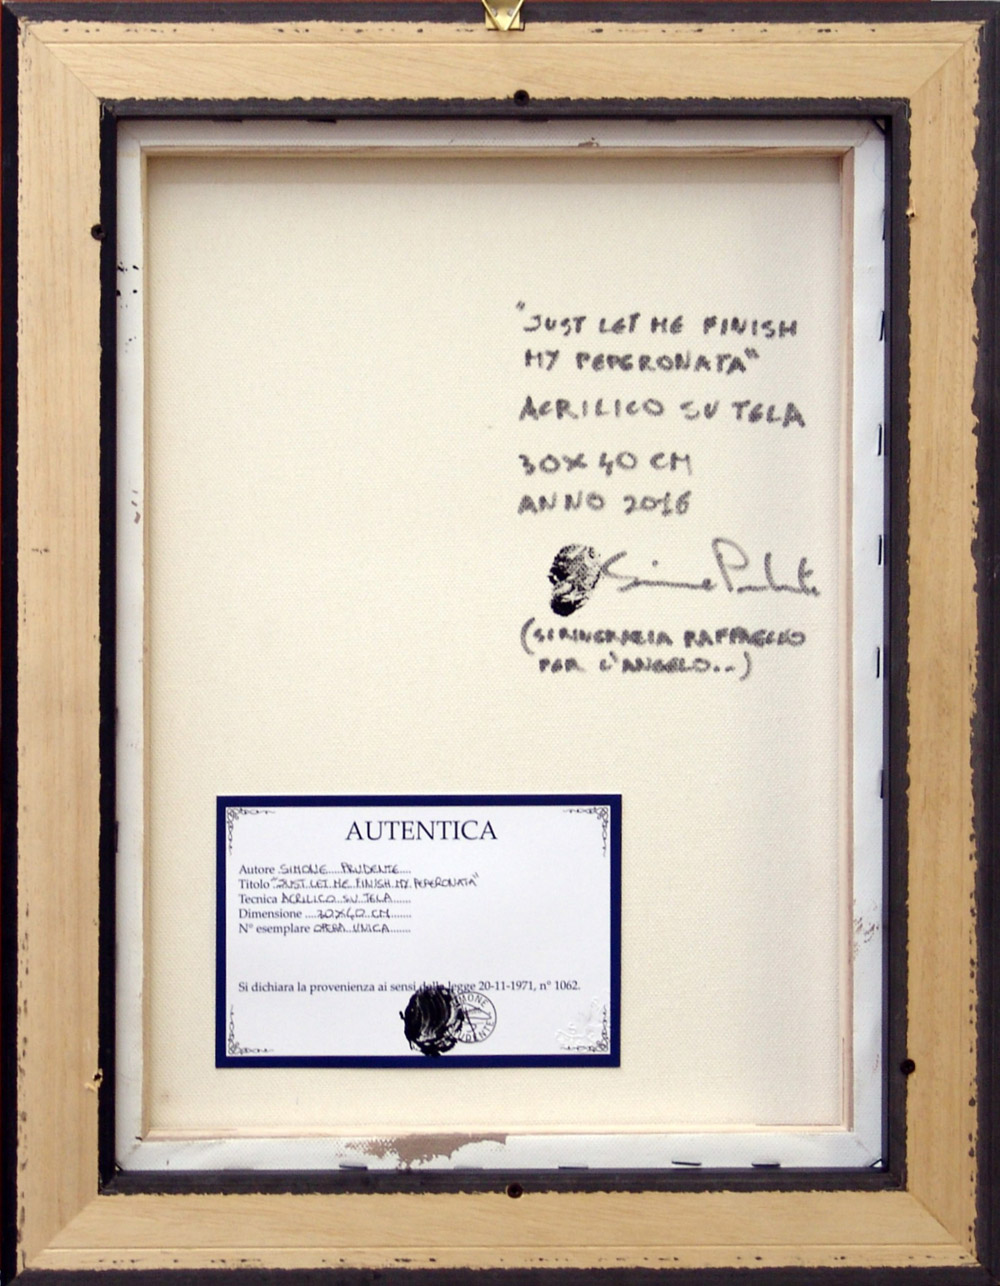 "JUST LET ME FINISH
MY PEPERONATA"
ACRILICO SU TELA
30X40 CM
ANNO 2016
Simone Prudente
(SI RINGRAZIA RAFFAELLO
PER L'ANGELO...)
AUTENTICA
Autore SIMONE PRUDENTE
Titolo "JUST LET ME FINISH MY PEPERONATA"
Tecnica ACRILICO SU TELA
Dimensione 30X40 CM
N° esemplare OPERA UNICA
Si dichiara la provenienza ai sensi della legge 20-11-1971, n° 1062.
SIMONE
PRUDENTE